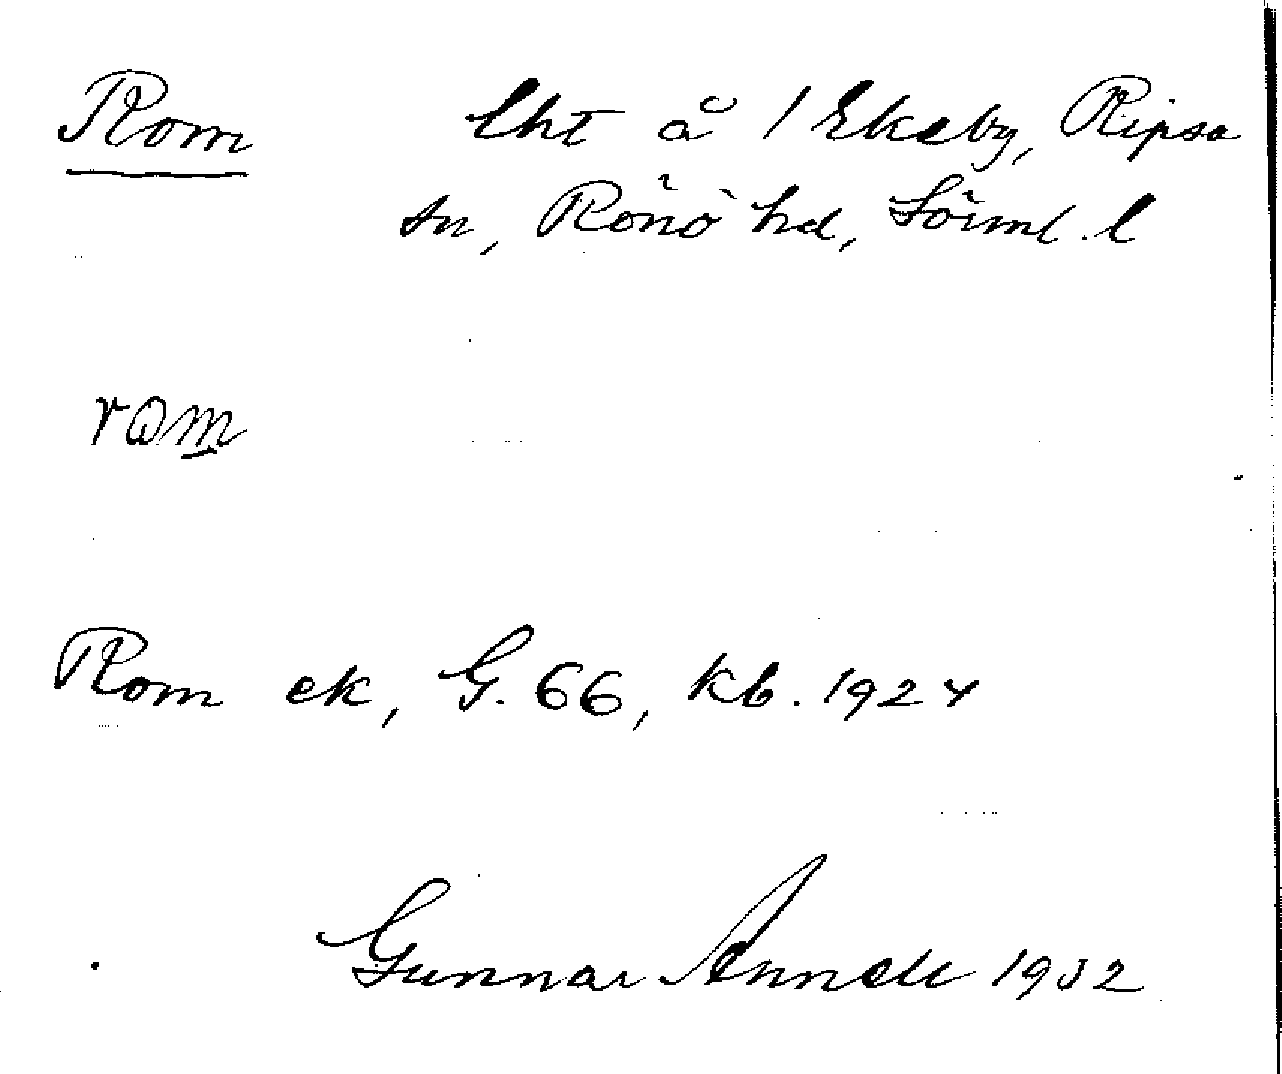 Rom lht å 1 Ekeby, Ripsa
sn, Rönö hd, Sörml. l
rọm̲
Rom ek, G. 66, kb. 1924
Gunnar Annell 1932